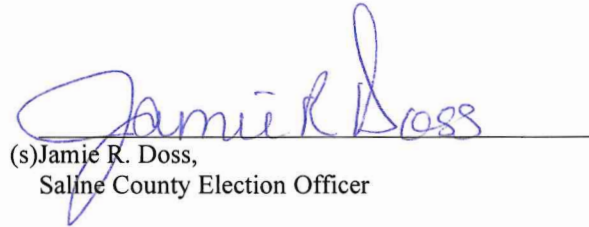 Jamie R Doss
(s)Jamie R. Doss,
Saline County Election Officer